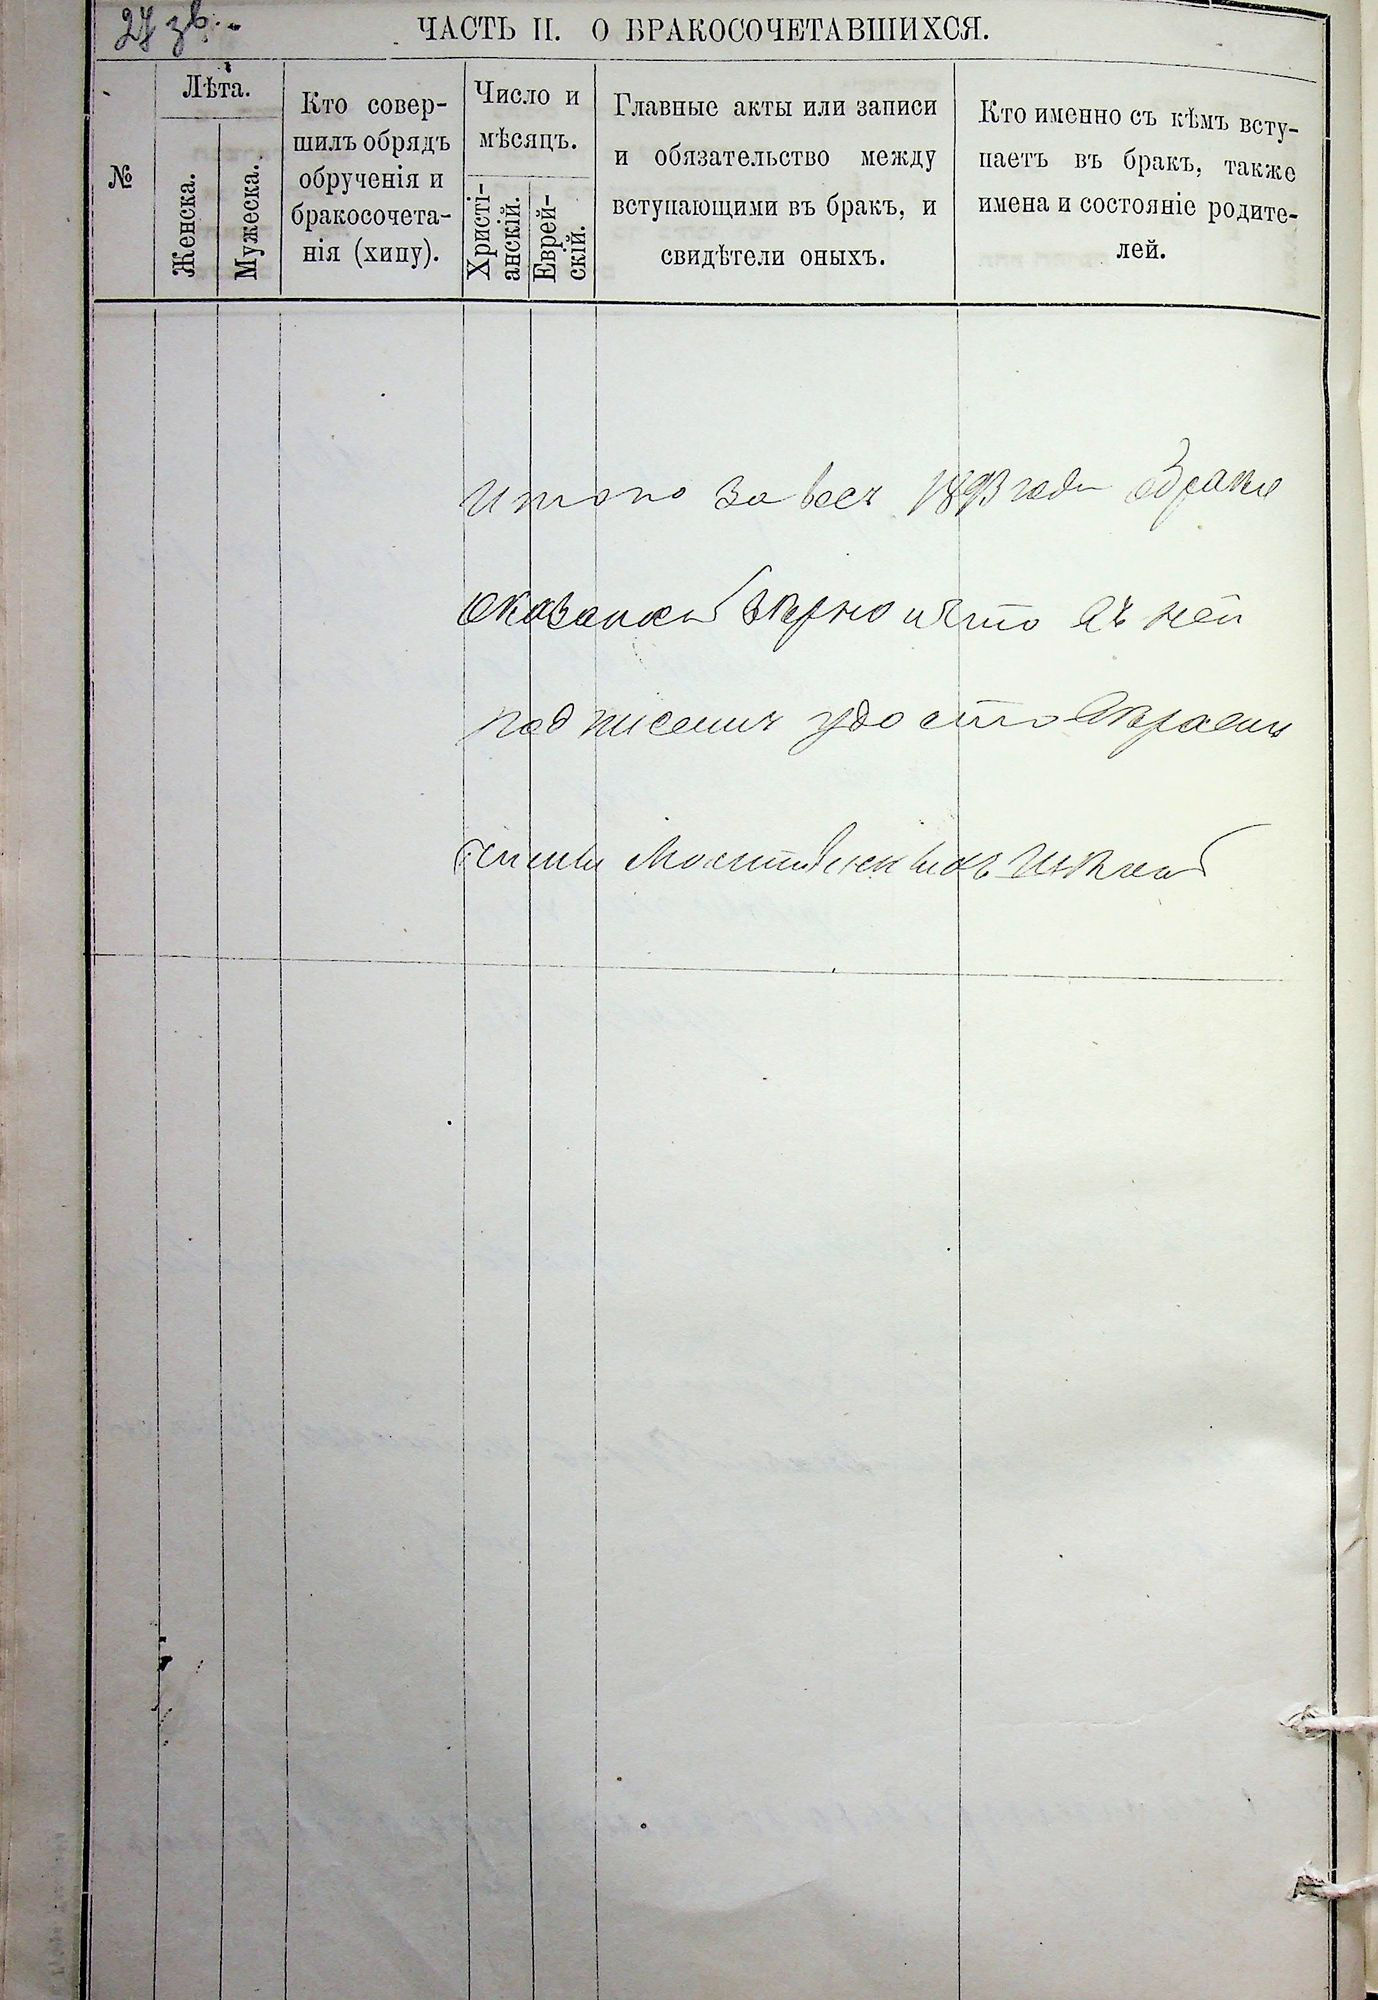 27 зв.
ЧАСТЬ II. О БРАКОСОЧЕТАВШИХСЯ.
№
Лѣта.
Женска.
Мужеска.
Кто совер-
шилъ обрядъ
обрученія и
бракосочета-
нія (хипу).
Число и
мѣсяцъ.
Христі-
анскій.
Еврей-
скій.
Главные акты или записи
и обязательство между
вступающими въ бракъ, и
свидѣтели оныхъ.
Кто именно съ кѣмъ всту-
паетъ въ бракъ, также
имена и состояніе родите-
лей.
Итого за весь 1893 годъ
оказалось вѣрно и что въ ней
подписемъ удостовѣраемъ